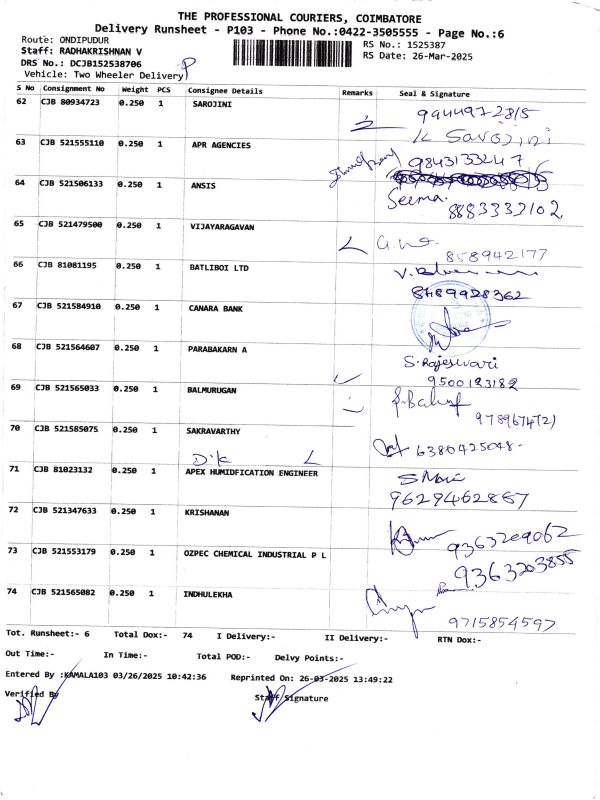 THE PROFESSIONAL COURIERS, COIMBATORE
Delivery Runsheet - P103 - Phone No.:0422-3505555 - Page No.:6
Route: ONDIPUDUR
RS No.: 1525387
Staff: RADHAKRISHNAN V
RS Date: 26-Mar-2025
DRS No.: DCJB152538706
Vehicle: Two Wheeler Delivery P
S No Consignment No Weight PCS Consignee Details Remarks Seal & Signature
62 CJB 80934723 0.250 1 SAROJINI
9944972815
K Sarojini
63 CJB 521555110 0.250 1 APR AGENCIES
9843133247
64 CJB 521506133 0.250 1 ANSIS
Seema
8883333102
65 CJB 521479500 0.250 1 VIJAYARAGAVAN
858942177
66 CJB 81081195 0.250 1 BATLIBOI LTD
8489928362
67 CJB 521584910 0.250 1 CANARA BANK
68 CJB 521564607 0.250 1 PARABAKARN A
S. Rajeswari
9500123182
69 CJB 521565033 0.250 1 BALMURUGAN
70 CJB 521585075 0.250 1 SAKRAVARTHY
6380425048-
D.K
71 CJB 81023132 0.250 1 APEX HUMIDFICATION ENGINEER
9629462867
72 CJB 521347633 0.250 1 KRISHANAN
9363209062
73 CJB 521553179 0.250 1 OZPEC CHEMICAL INDUSTRIAL P L
9363203855
74 CJB 521565082 0.250 1 INDHULEKHA
9715854597
Tot. Runsheet:- 6 Total Dox:- 74 I Delivery:- II Delivery:- RTN Dox:-
Out Time:- In Time:- Total POD:- Delvy Points:-
Entered By :KAMALA103 03/26/2025 10:42:36 Reprinted On: 26-03-2025 13:49:22
Verified By Staff Signature